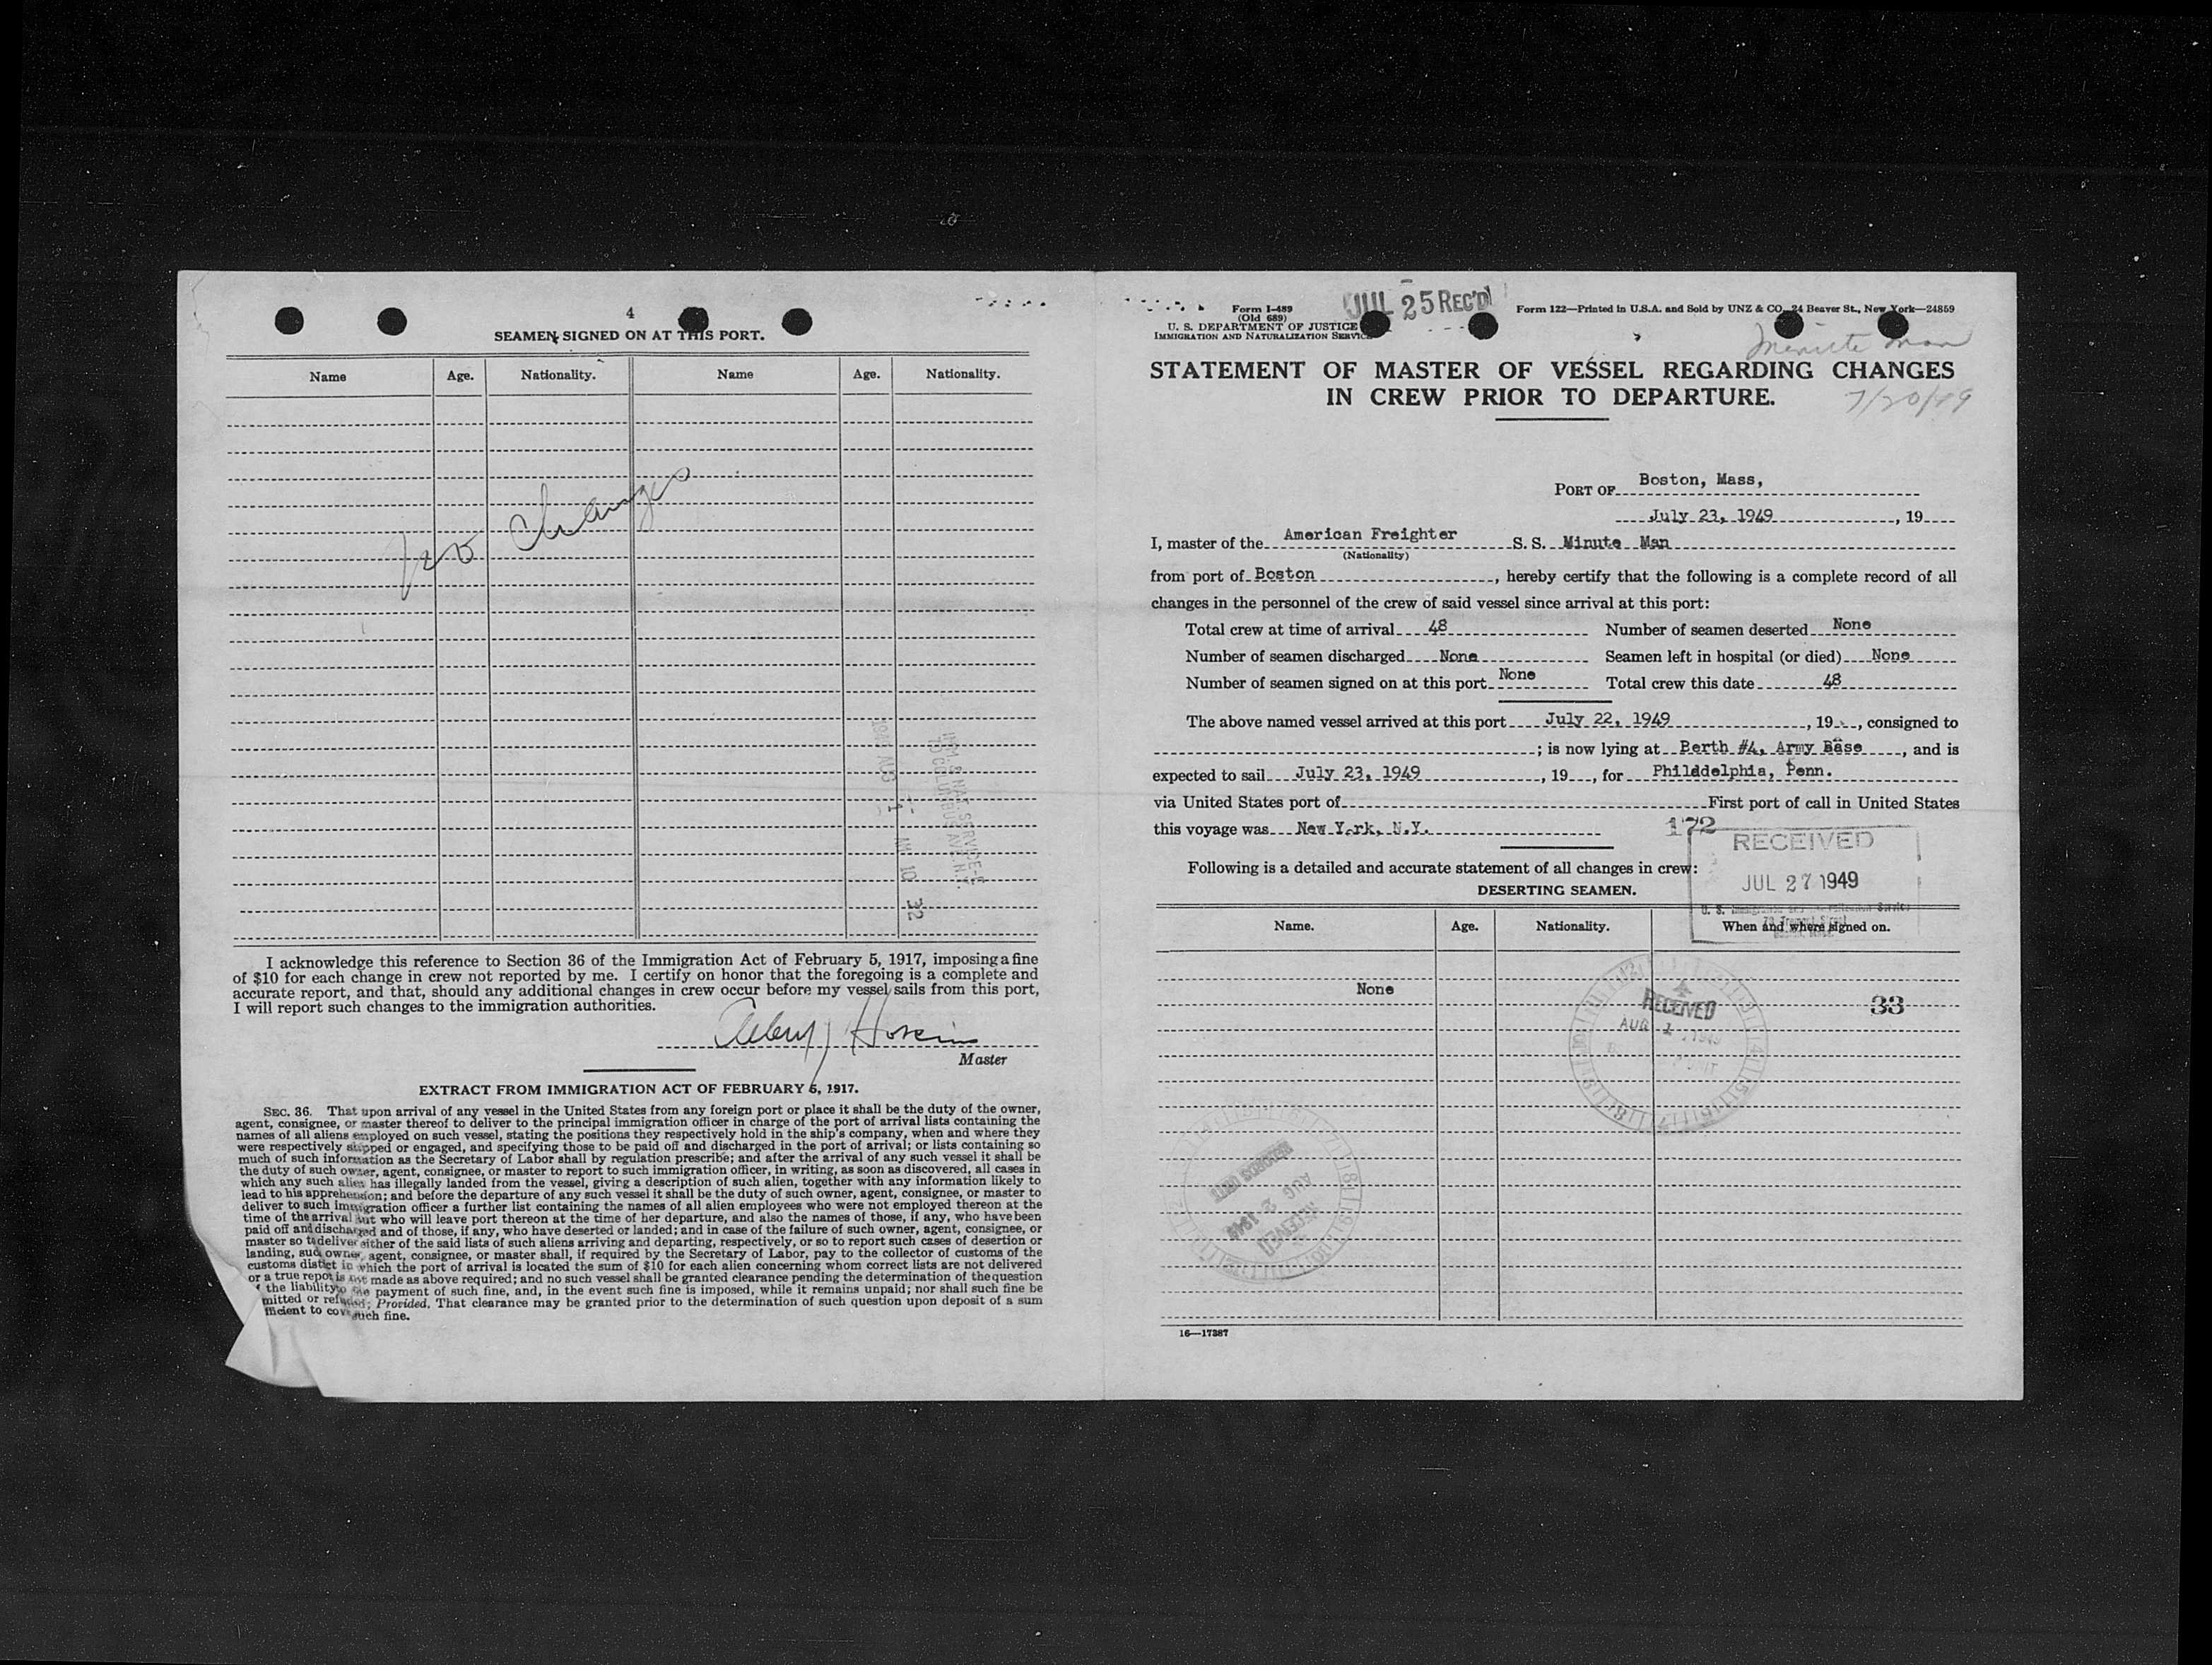 4
SEAMEN SIGNED ON AT THIS PORT.
Name Age. Nationality. Name Age. Nationality.
No Changes
1949 AUG 1 AM 10 32
IMM. & NAT. SERVICE
70 COLUMBUS AVE. N.Y.
I acknowledge this reference to Section 36 of the Immigration Act of February 5, 1917, imposing a fine
of $10 for each change in crew not reported by me. I certify on honor that the foregoing is a complete and
accurate report, and that, should any additional changes in crew occur before my vessel sails from this port,
I will report such changes to the immigration authorities.
Master
EXTRACT FROM IMMIGRATION ACT OF FEBRUARY 5, 1917.
SEC. 36. That upon arrival of any vessel in the United States from any foreign port or place it shall be the duty of the owner,
agent, consignee, or master thereof to deliver to the principal immigration officer in charge of the port of arrival lists containing the
names of all aliens employed on such vessel, stating the positions they respectively hold in the ship's company, when and where they
were respectively shipped or engaged, and specifying those to be paid off and discharged in the port of arrival; or lists containing so
much of such information as the Secretary of Labor shall by regulation prescribe; and after the arrival of any such vessel it shall be
the duty of such owner, agent, consignee, or master to report to such immigration officer, in writing, as soon as discovered, all cases in
which any such alien has illegally landed from the vessel, giving a description of such alien, together with any information likely to
lead to his apprehension; and before the departure of any such vessel it shall be the duty of such owner, agent, consignee, or master to
deliver to such immigration officer a further list containing the names of all alien employees who were not employed thereon at the
time of the arrival but who will leave port thereon at the time of her departure, and also the names of those, if any, who have been
paid off and discharged and of those, if any, who have deserted or landed; and in case of the failure of such owner, agent, consignee, or
master so to deliver either of the said lists of such aliens arriving and departing, respectively, or so to report such cases of desertion or
landing, such owner, agent, consignee, or master shall, if required by the Secretary of Labor, pay to the collector of customs of the
customs district in which the port of arrival is located the sum of $10 for each alien concerning whom correct lists are not delivered
or a true report is not made as above required; and no such vessel shall be granted clearance pending the determination of the question
the liability to the payment of such fine, and, in the event such fine is imposed, while it remains unpaid; nor shall such fine be
mitted or refunded; Provided, That clearance may be granted prior to the determination of such question upon deposit of a sum
ficient to cover such fine.
Form I-489
(Old 689)
U. S. DEPARTMENT OF JUSTICE
IMMIGRATION AND NATURALIZATION SERVICE
JUL 25 REC'D
Form 122—Printed in U.S.A. and Sold by UNZ & CO., 24 Beaver St., New York—24859
Minute Man
7/20/49
STATEMENT OF MASTER OF VESSEL REGARDING CHANGES
IN CREW PRIOR TO DEPARTURE.
PORT OF Boston, Mass,
July 23, 1949, 19
I, master of the American Freighter S. S. Minute Man
(Nationality)
from port of Boston, hereby certify that the following is a complete record of all
changes in the personnel of the crew of said vessel since arrival at this port:
Total crew at time of arrival 48 Number of seamen deserted None
Number of seamen discharged None Seamen left in hospital (or died) None
Number of seamen signed on at this port None Total crew this date 48
The above named vessel arrived at this port July 22, 1949, 19, consigned to
; is now lying at Berth #4, Army Base, and is
expected to sail July 23, 1949, 19, for Philddelphia, Penn.
via United States port of First port of call in United States
this voyage was New York, N.Y.
172
RECEIVED
JUL 27 1949
Following is a detailed and accurate statement of all changes in crew:
DESERTING SEAMEN.
Name. Age. Nationality. When and where signed on.
None
33
RECEIVED
AUG 1 1949
RECORDS UNIT
AUG 2 1949
RECEIVED
16—17387